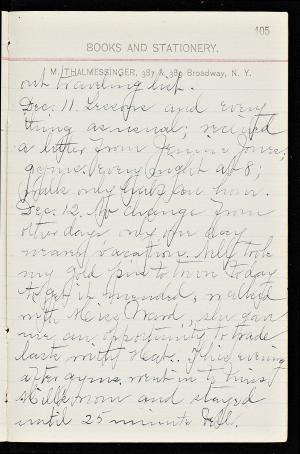 105
BOOKS AND STATIONERY.
M. THALMESSINGER, 387 & 389 Broadway, N. Y.
out traveling list.
Dec. 11. Lessons and every
thing as usual; received
a letter from Jennie Jones;
gymn. every night at 8;
walk only half an hour.
Dec. 12. No change from
other days only one day
nearer vacation. Nell took
my gold pin to town today
to get it mended; walked
with Mercy Ward, she gave
me an opportunity to trade
back with that. This evening
after gymn. went in to Miss
Hill's room and stayed
until 25 minute bell.